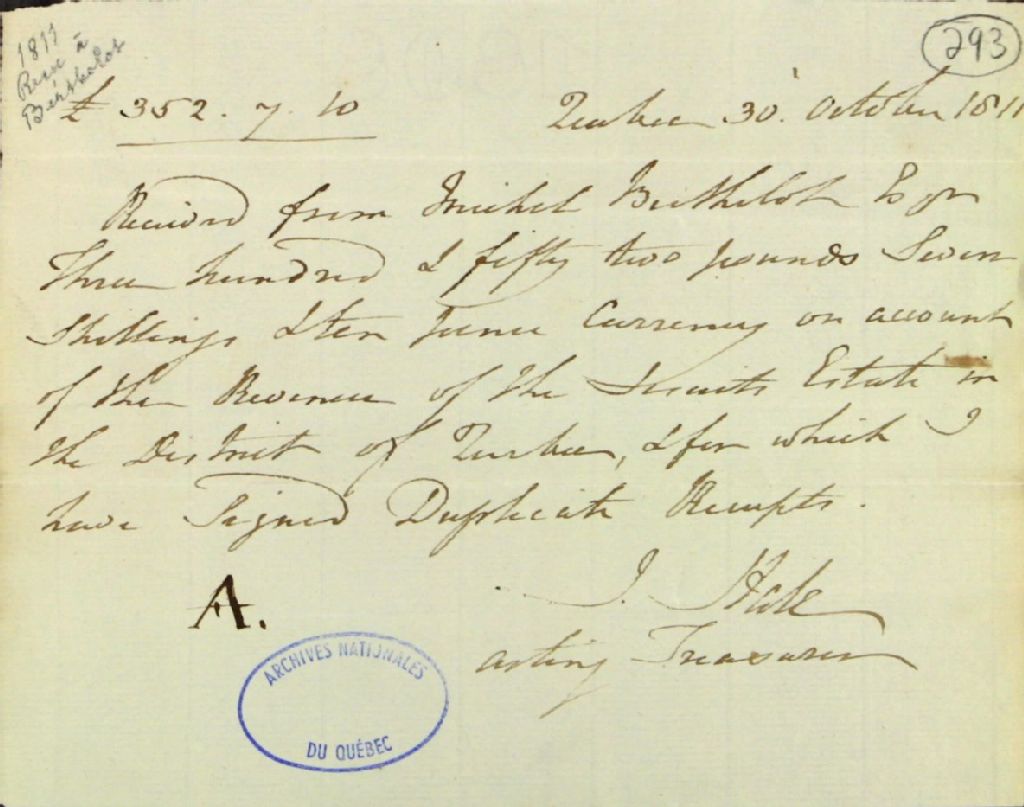 1811
Reçu à
Berthelot
293
£ 352. 7. 10
Quebec 30. October 1811
Received from Michel Berthelot Esqr
Three hundred & fifty two pounds Seven
Shillings & ten pence Currency on account
of the Revenue of the Jesuits Estate in
the District of Quebec, & for which I
have Signed Duplicate Receipts.
J. Hale
acting Treasurer
A.
ARCHIVES NATIONALES
DU QUÉBEC